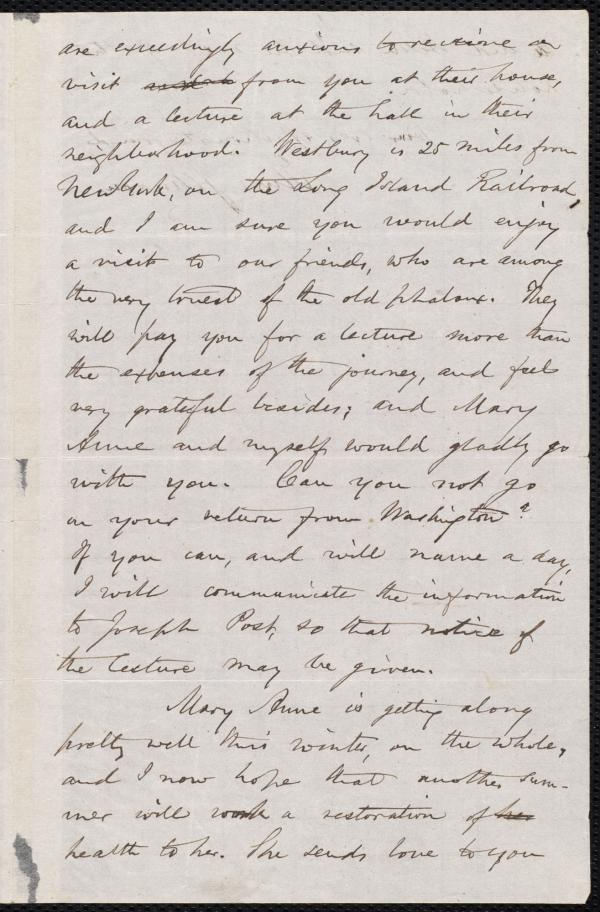 are exceedingly anxious to receive a
visit from you at their house,
and a lecture at the hall in their
neighborhood. Westbury is 25 miles from
New York, on the Long Island Railroad,
and I am sure you would enjoy
a visit to our friends, who are among
the very truest of the old phalanx. They
will pay you for a lecture more than
the expenses of the journey, and feel
very grateful besides; and Mary
Anne and myself would gladly go
with you. Can you not go
on your return from Washington?
If you can, and will name a day,
I will communicate the information
to Joseph Post, so that notice of
the lecture may be given.
Mary Anne is getting along
pretty well this winter, on the whole,
and I now hope that another sum-
mer will work a restoration of her
health to her. She sends love to you